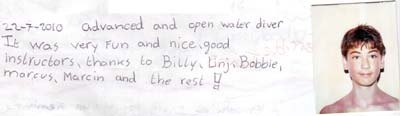 22-7-2010 advanced and open water diver
It was very fun and nice, good
instructors, thanks to Billy, Linj, Bobbie,
marcus, Marcin and the rest !!